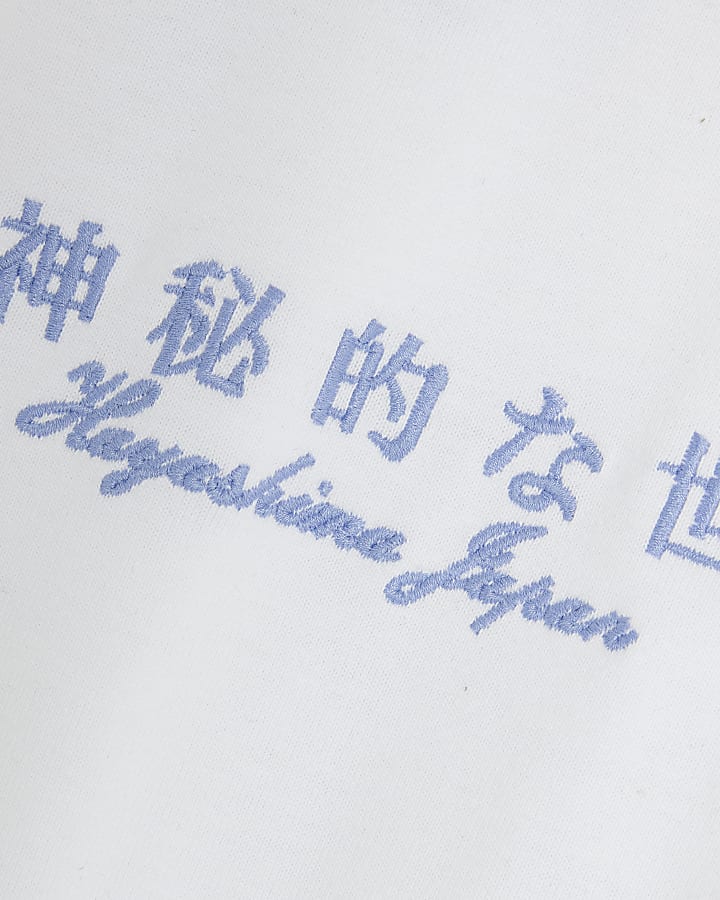 神秘的な世
Hayashima Japan